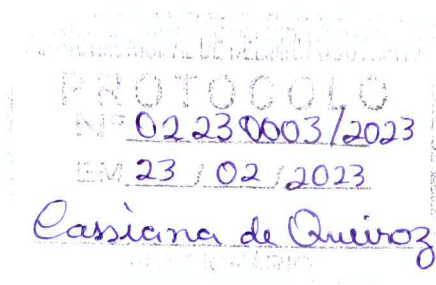 PROTOCOLO
Nº 02230003/2023
EM 23 / 02 / 2023
Cassiana de Queiroz